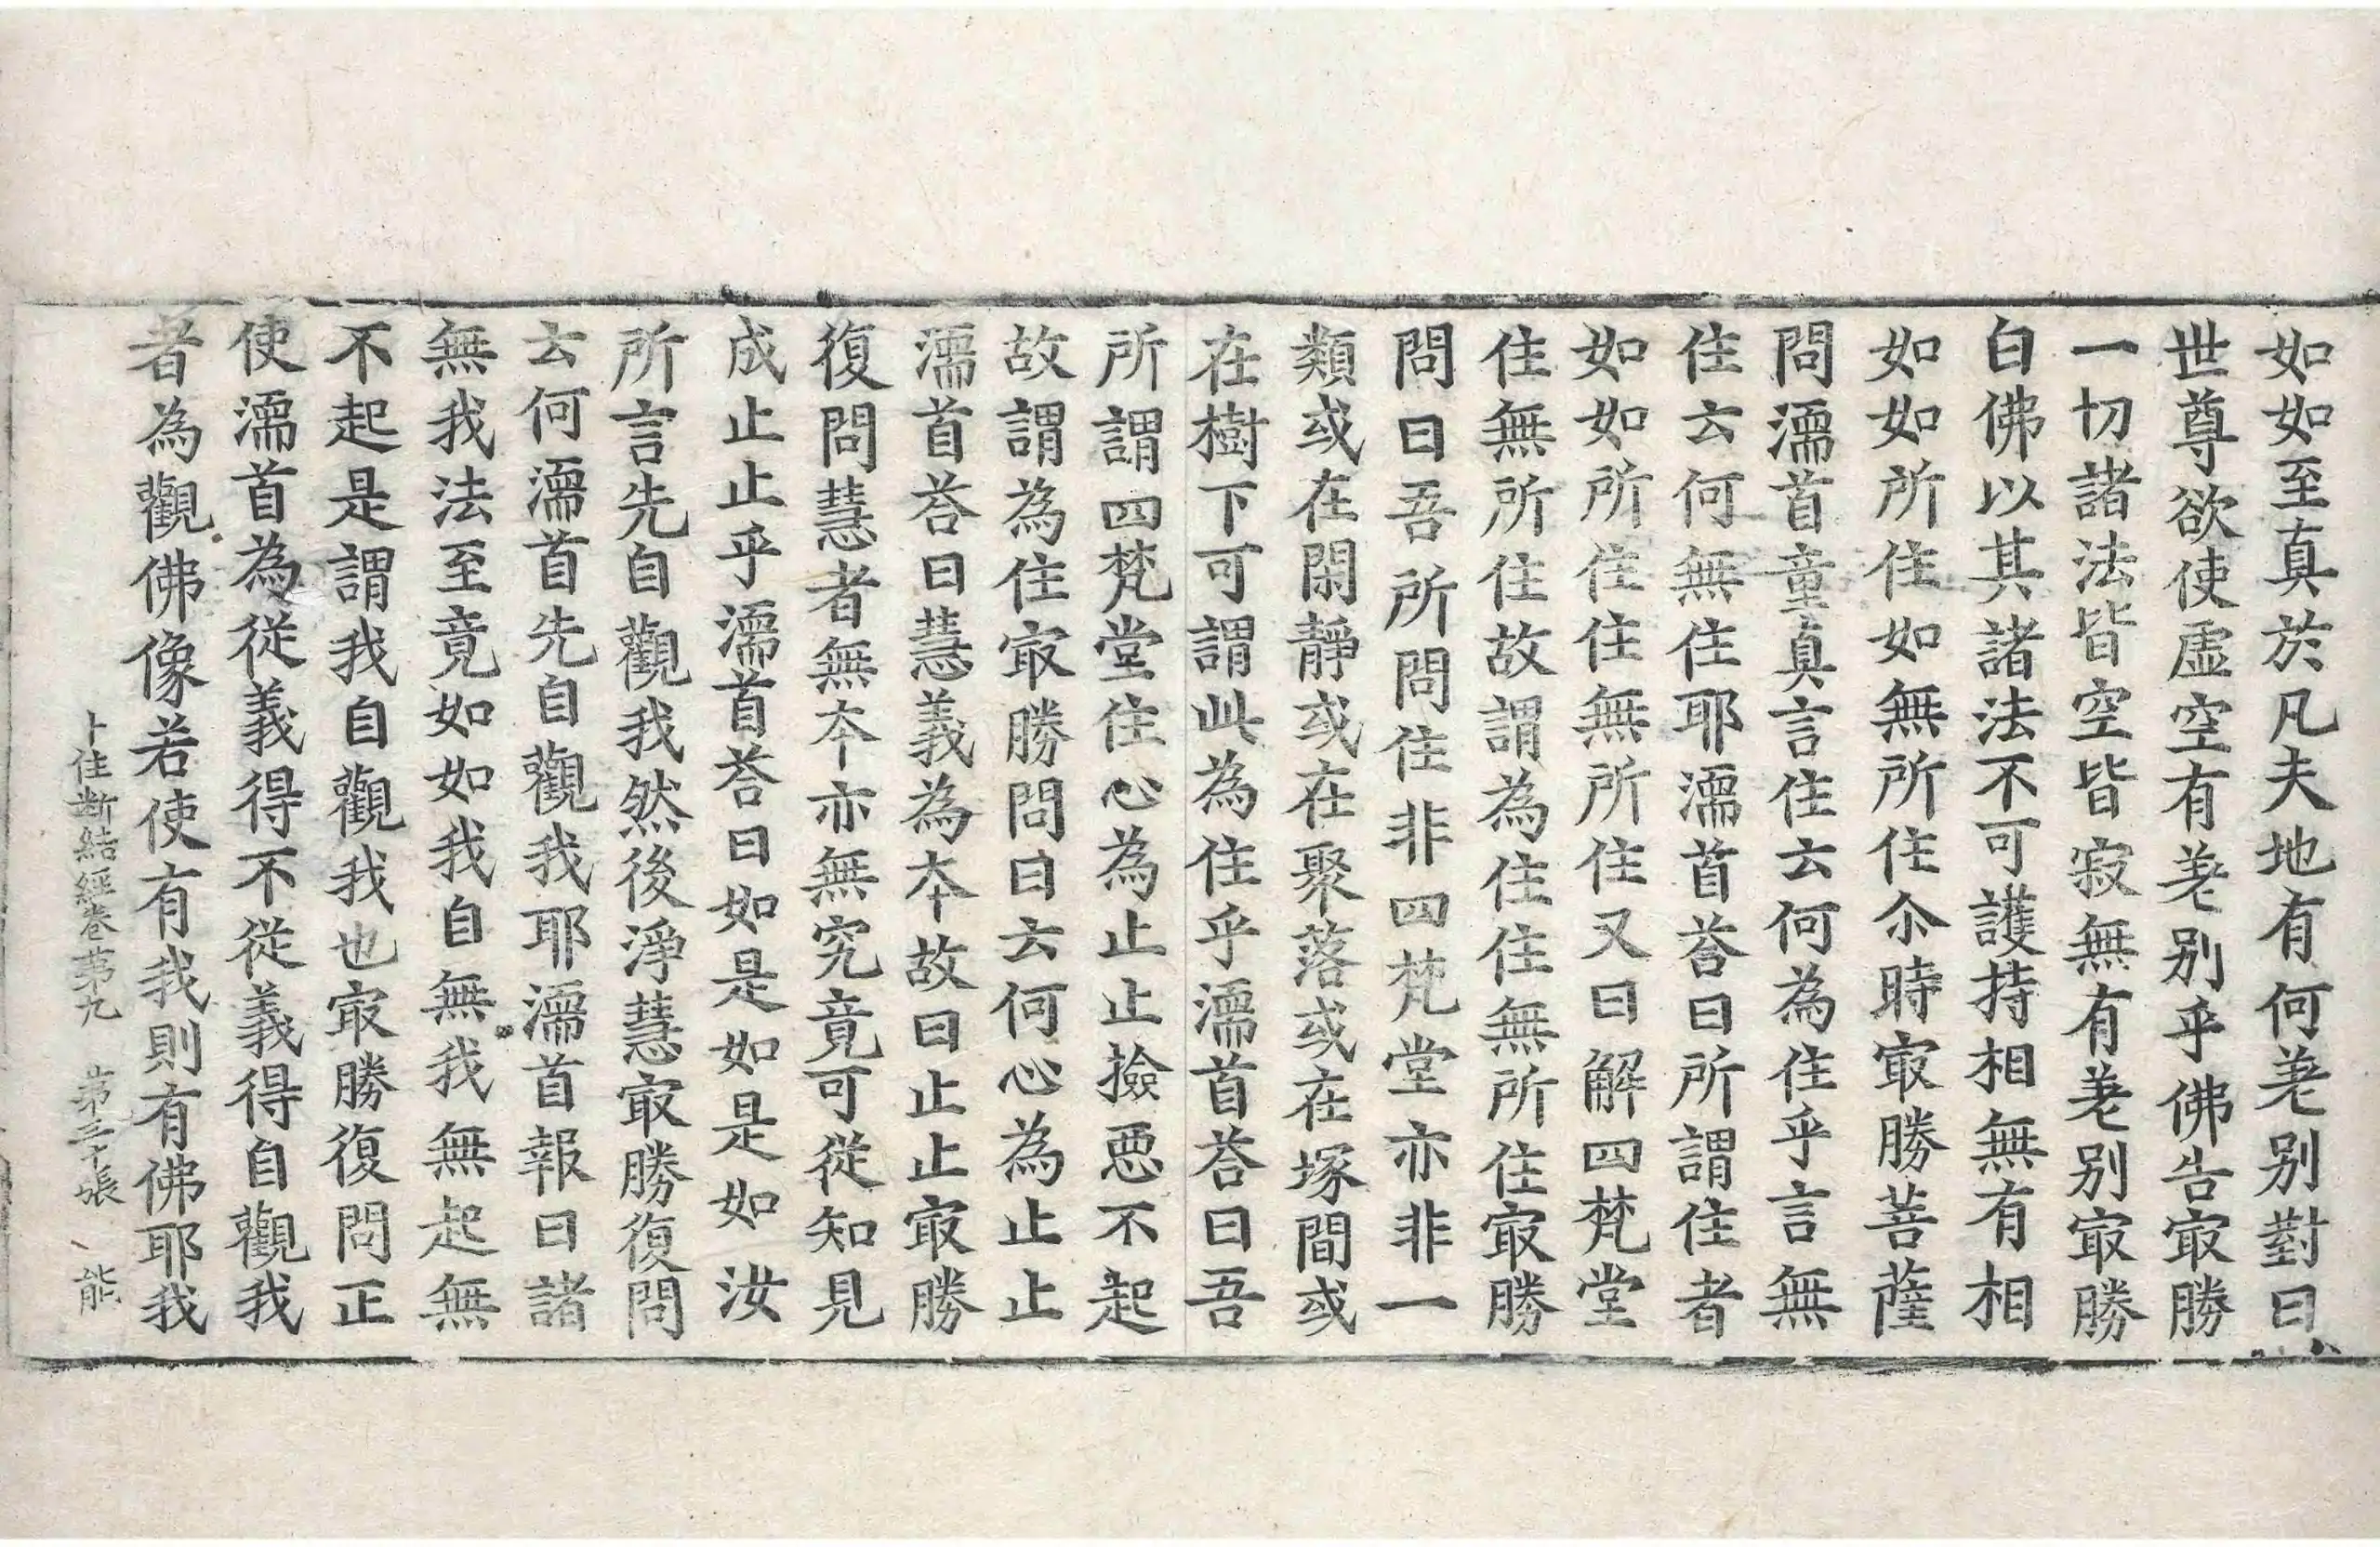 如如至真於凡夫地有何差别對曰
世尊欲使虛空有差别乎佛告㝡勝
一切諸法皆空皆寂無有差别㝡勝
白佛以其諸法不可護持相無有相
如如所住如無所住尒時㝡勝菩薩
問濡首童真言住云何為住乎言無
住云何無住耶濡首荅曰所謂住者
如如所住住無所住又曰解四梵堂
住無所住故謂為住住無所住㝡勝
問曰吾所問住非四梵堂亦非一
類或在閑靜或在聚落或在塚間或
在樹下可謂此為住乎濡首荅曰吾
所謂四梵堂住心為止止撿惡不起
故謂為住㝡勝問曰云何心為止止
濡首荅曰慧義為夲故曰止止㝡勝
復問慧者無夲亦無究竟可從知見
成止止乎濡首荅曰如是如是如汝
所言先自觀我然後淨慧㝡勝復問
云何濡首先自觀我耶濡首報曰諸
無我法至竟如如我自無我無起無
不起是謂我自觀我也㝡勝復問正
使濡首為從義得不從義得自觀我
者為觀佛像若使有我則有佛耶我
十住断結經卷苐九 苐三十張 能